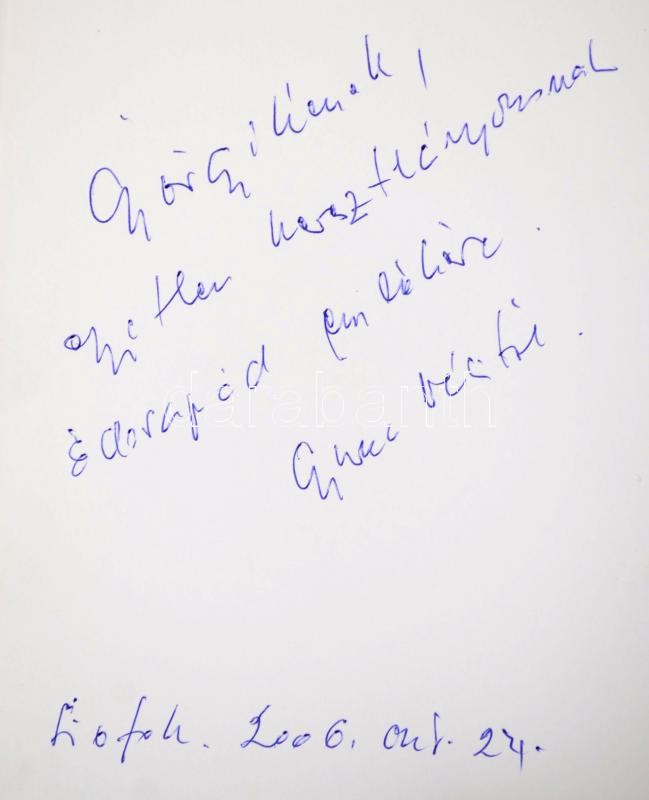 Györgyikének,
egyetlen keresztlányomnak
édesapád emlékére.
Gyuri bácsitól.
Siófok. 2006. okt. 24.
darabanth